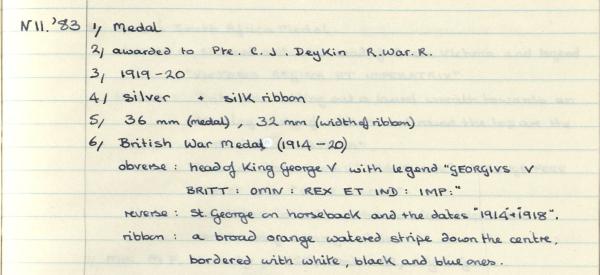 N11.'83 1, Medal
2, awarded to Pte. C. J. Deykin R.War.R.
3, 1919-20
4, silver + silk ribbon
5, 36 mm (medal), 32 mm (width of ribbon)
6, British War Medal (1914-20)
obverse : head of King George V with legend "GEORGIVS V
BRITT : OMN : REX ET IND : IMP:"
reverse : St. George on horseback and the dates "1914"+"1918".
ribbon : a broad orange watered stripe down the centre,
bordered with white, black and blue ones.